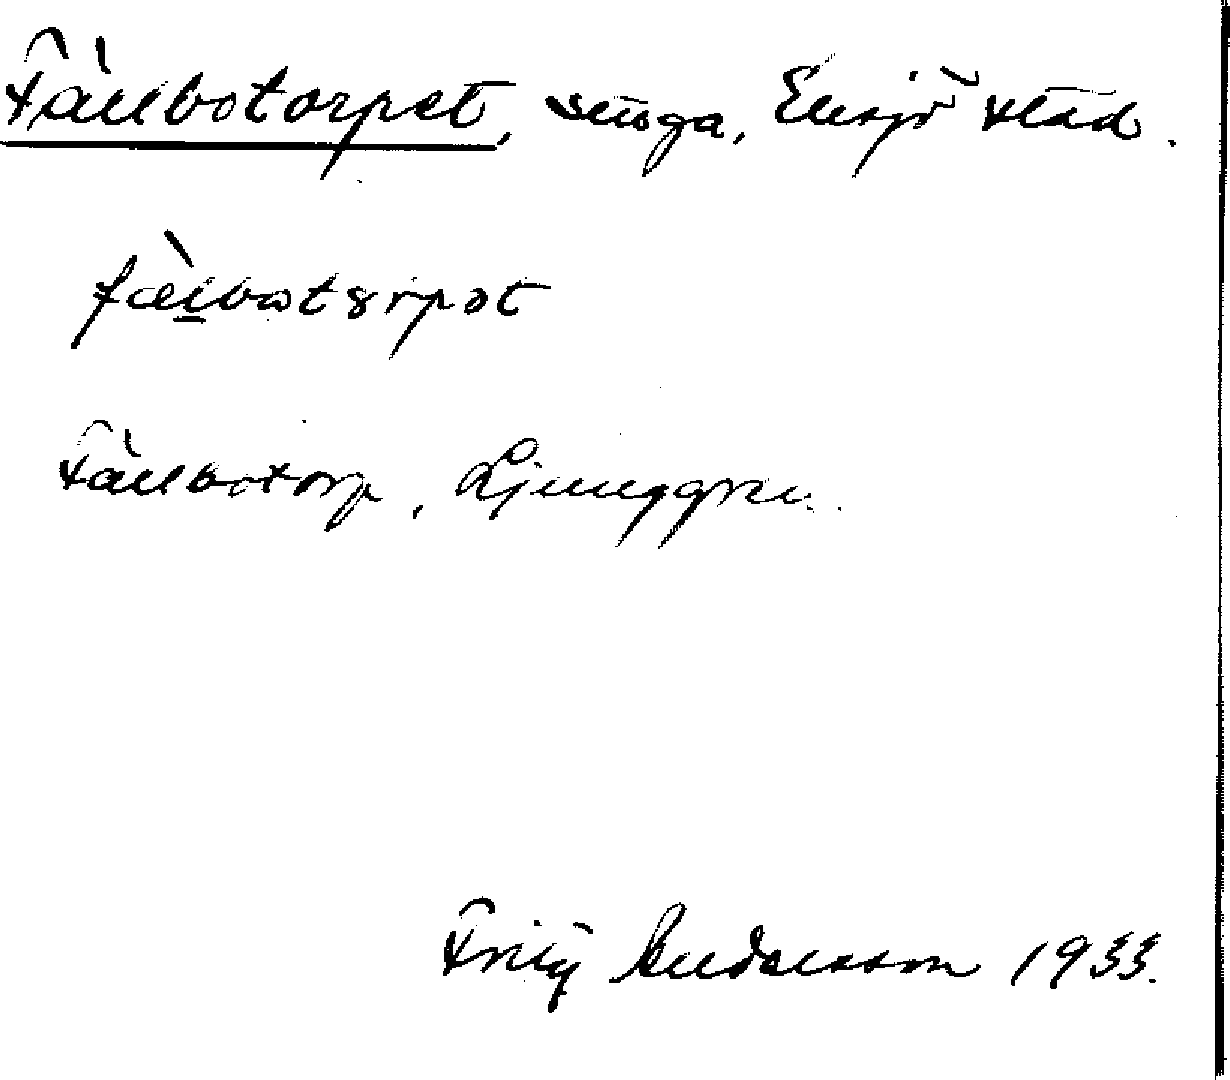 Fällbotorpet, stuga, Eksjö stad.
fælbotorpət
Fällbotorp, Ljunggren.
Fritz Andersson 1933.